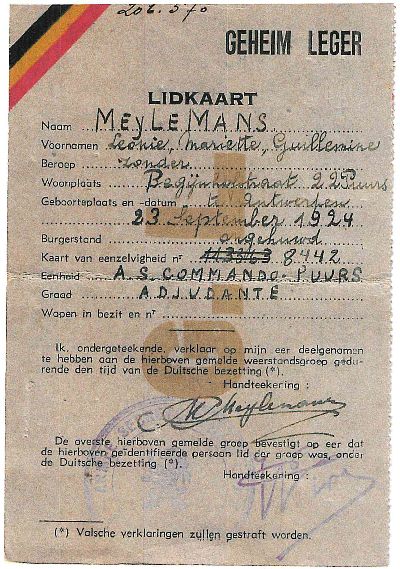 202.570
GEHEIM LEGER
LIDKAART
Naam MEYLEMANS
Voornamen Léonie, Mariette, Guillemine
Beroep zonder
Woonplaats Begijnhofstraat 22 Puurs
Geboorteplaats en -datum te Antwerpen
23 September 1924
Burgerstand ongehuwd
Kaart van eenzelvigheid nr 8442
Eenheid A.S. COMMANDO - PUURS
Graad ADJUDANTE
Wapen in bezit en nr
Ik, ondergeteekende, verklaar op mijn eer deelgenomen
te hebben aan de hierboven gemelde weerstandsgroep gedu-
rende den tijd van de Duitsche bezetting (*).
Handteekering :
Meylemans
De overste hierboven gemelde groep bevestigt op eer dat
de hierboven geïdentifieerde persoon lid der groep was, onder
de Duitsche bezetting (*).
Handteekering :
(*) Valsche verklaringen zullen gestraft worden.